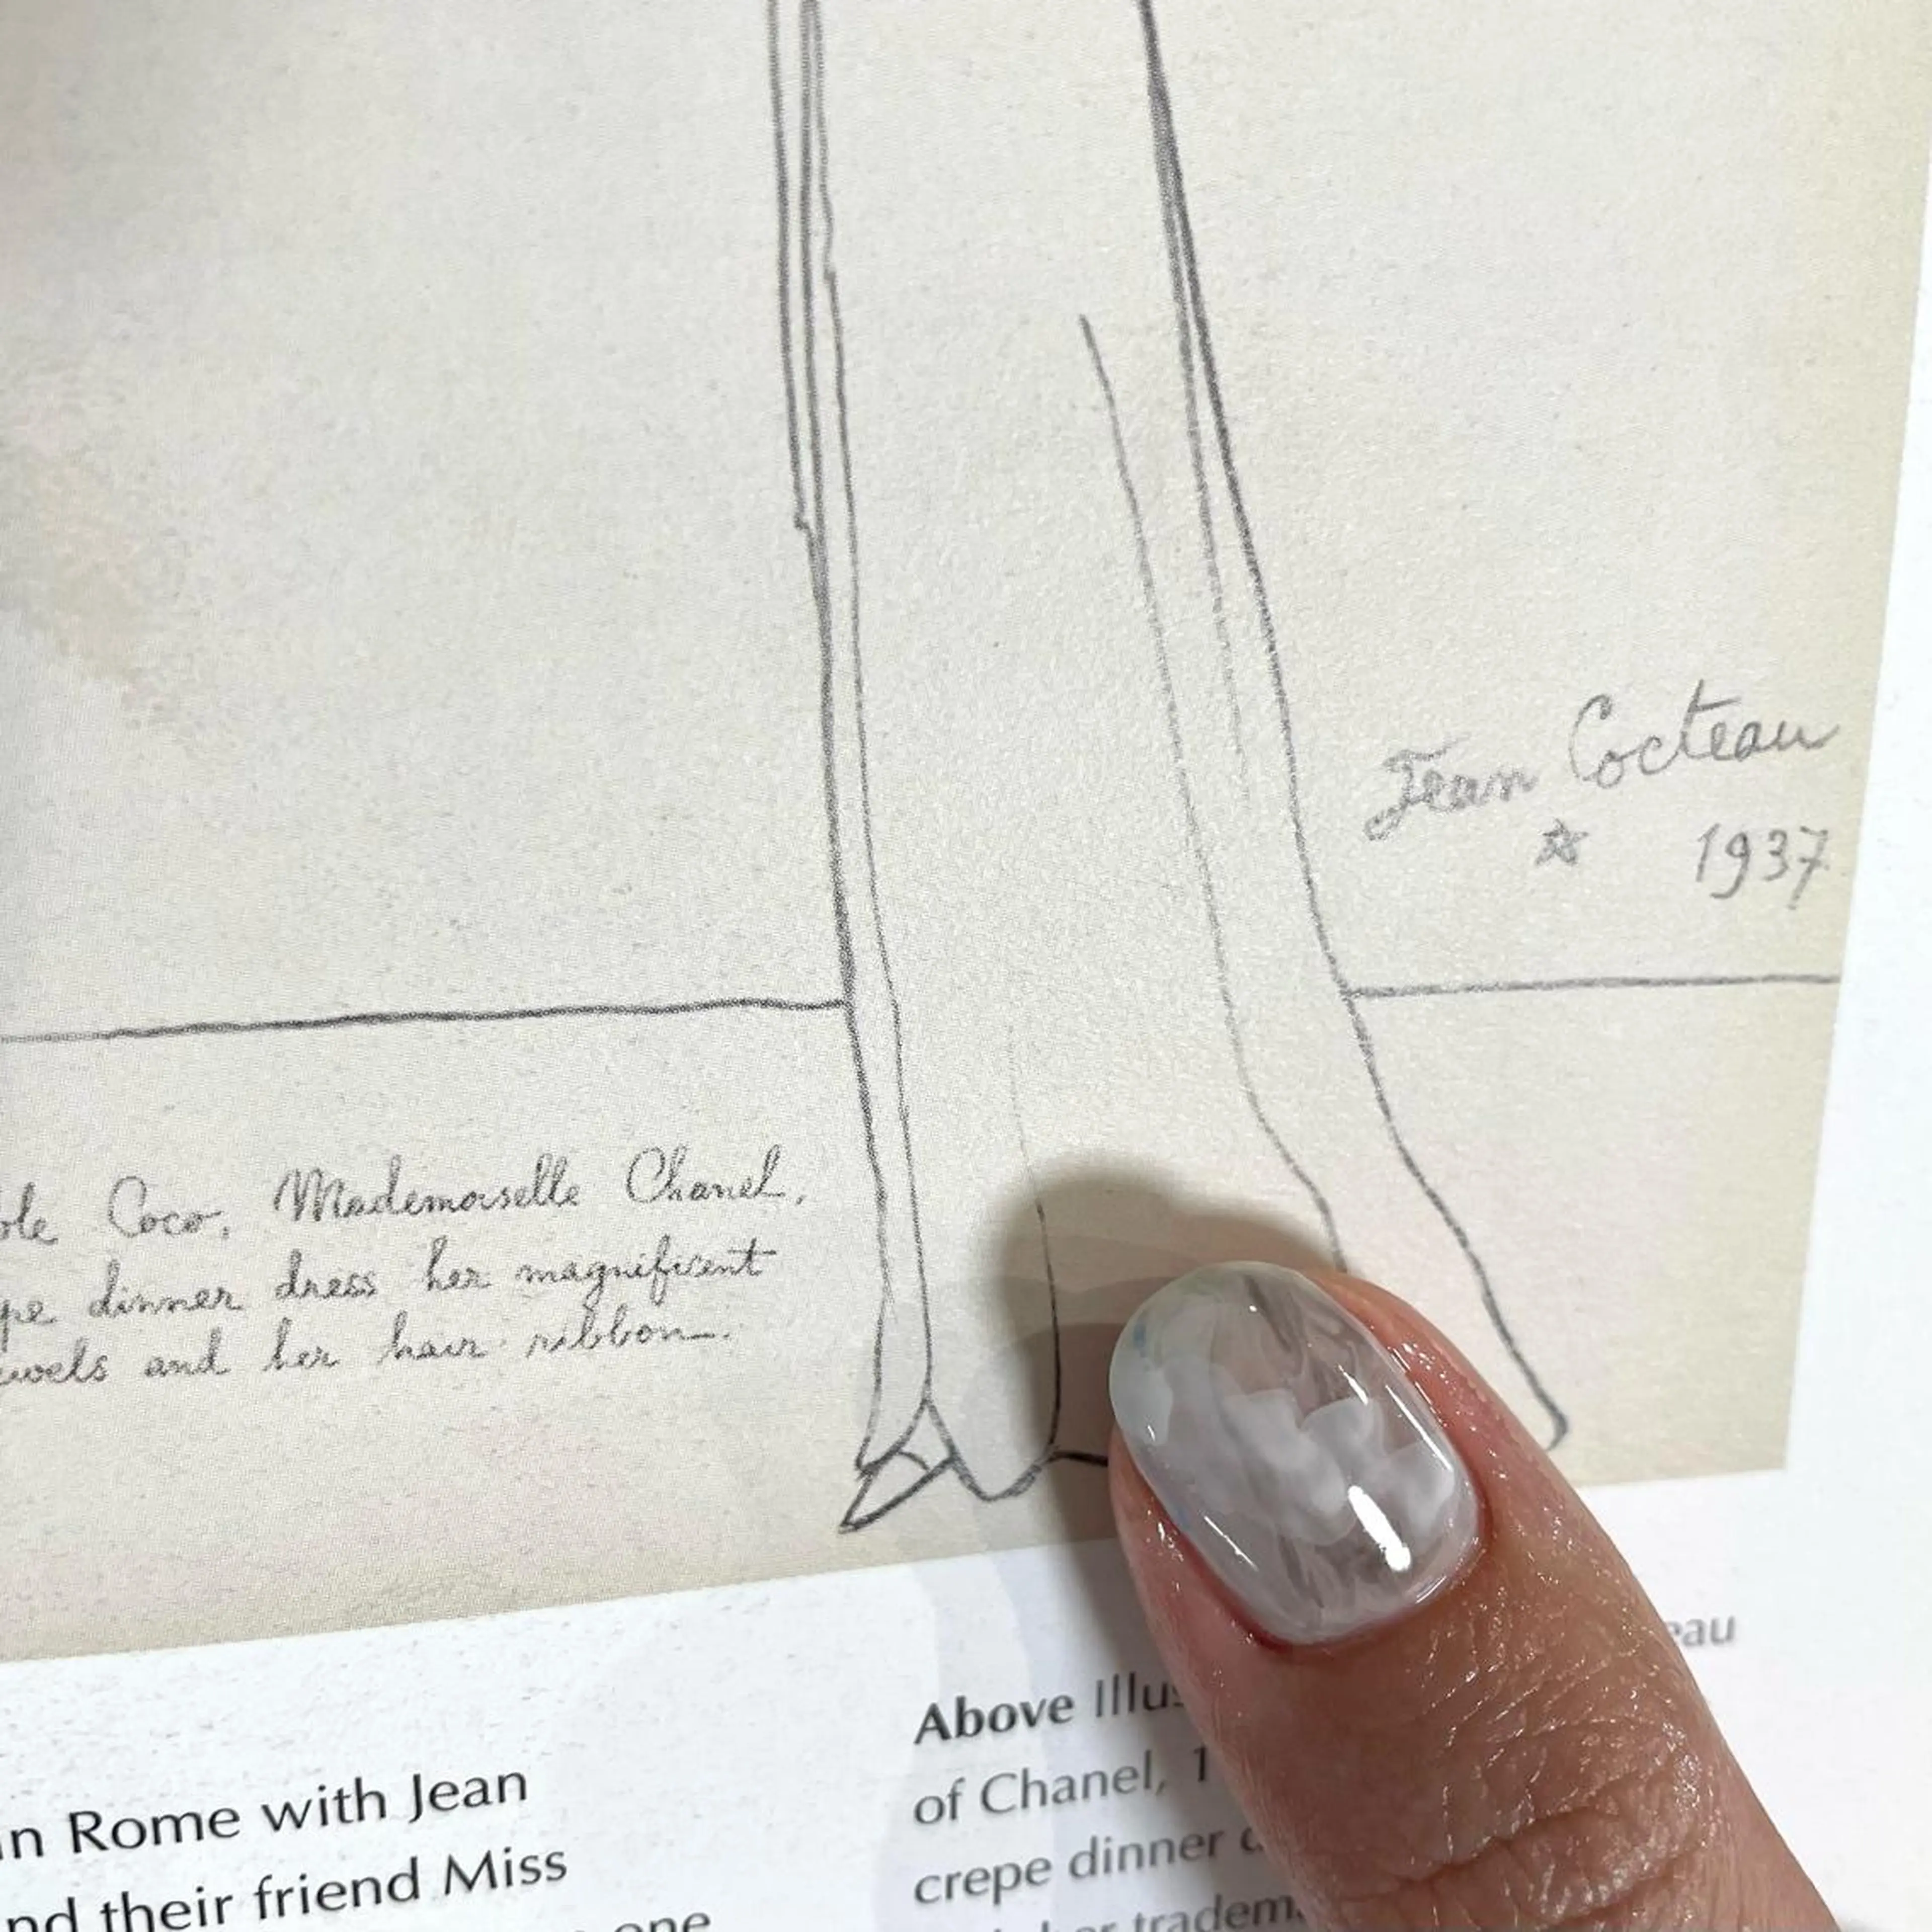 Jean Cocteau
☆ 1937
Coco, Mademoiselle Chanel,
dinner dress her magnificent
and her hair ribbon.
in Rome with Jean
their friend Miss
one
Above
of Chanel,
crepe dinner
her